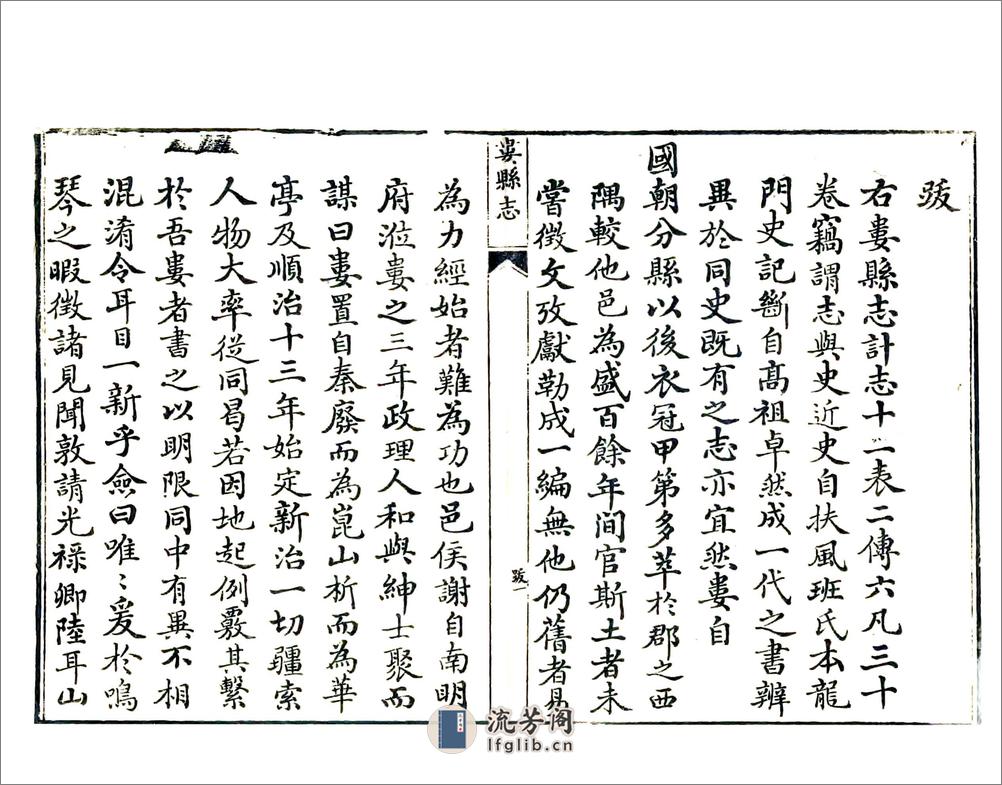 跋
右婁縣志計志十二表二傳六凡三十
卷竊謂志與史近史自扶風班氏本龍
門史記斷自高祖卓然成一代之書辨
異於同史既有之志亦宜然婁自
國朝分縣以後衣冠甲第多萃於郡之西
隅較他邑為盛百餘年間官斯土者未
嘗徵文攷獻勒成一編無他仍舊者易
婁縣志
跋一
為力經始者難為功也邑侯謝自南明
府涖婁之三年政理人和與紳士聚而
謀曰婁置自秦廢而為崑山析而為華
亭及順治十三年始定新治一切疆索
人物大率從同曷若因地起例覈其繫
於吾婁者書之以明限同中有異不相
混淆令耳目一新乎僉曰唯〻爰於鳴
琴之暇徵諸見聞敦請光祿卿陸耳山
流芳阁
lfglib.cn